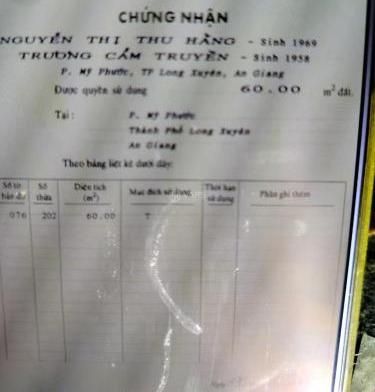 CHỨNG NHẬN
NGUYỄN THỊ THU HẰNG - Sinh 1969
TRƯƠNG CẨM TRUYỀN - Sinh 1958
P. Mỹ Phước, TP Long Xuyên, An Giang
Được quyền sử dụng 60.00 m² đất.
Tại: P. Mỹ Phước
Thành Phố Long Xuyên
An Giang
Theo bảng liệt kê dưới đây:
Số tờ bản đồ Số thửa Diện tích (m²) Mục đích sử dụng Thời hạn sử dụng Phần ghi thêm
076 202 60.00 T